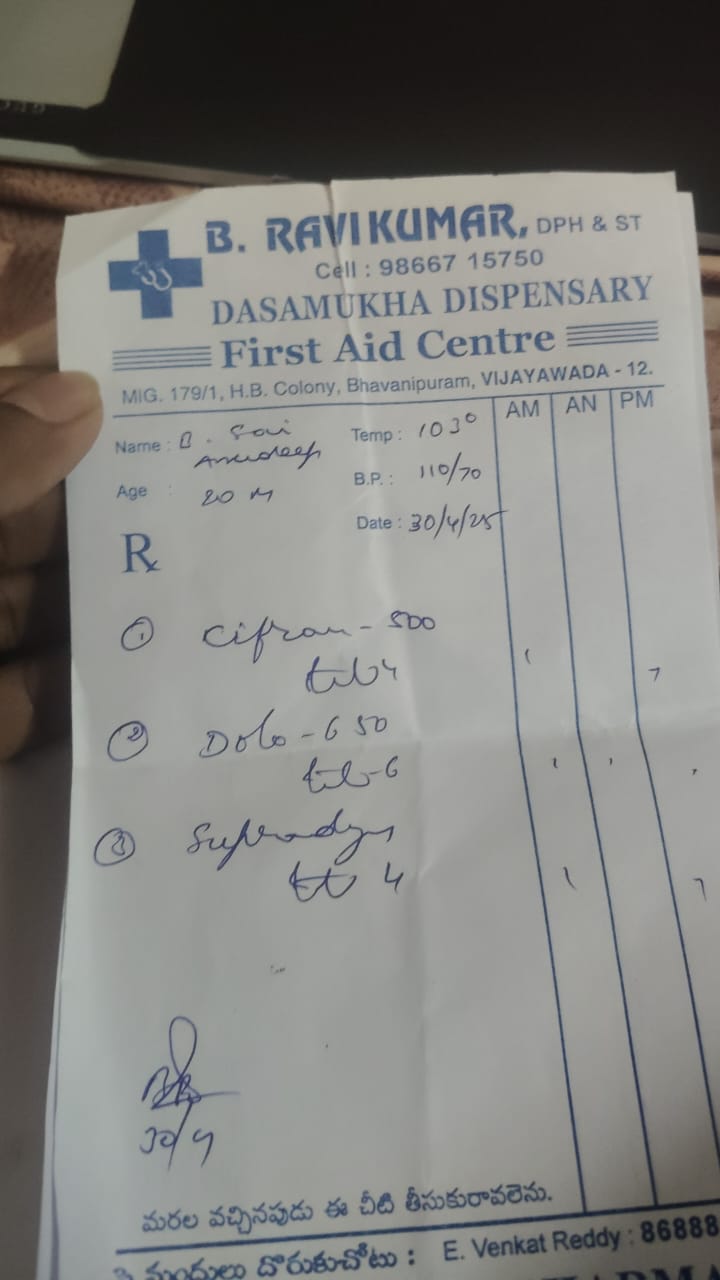 B. RAVI KUMAR, DPH & ST
Cell : 98667 15750
DASAMUKHA DISPENSARY
First Aid Centre
MIG. 179/1, H.B. Colony, Bhavanipuram, VIJAYAWADA - 12.
AM AN PM
Name : B. Sai Anudeep
Temp : 103°
Age : 20 M
B.P. : 110/70
Date : 30/4/25
Rx
① Cifran - 500
tab 4
② Dolo - 650
tab - 6
③ Supradyn
tab 4
30/4
మరల వచ్చినపుడు ఈ చీటి తీసుకురావలెను.
మందులు దొరుకుచోటు : E. Venkat Reddy : 86888